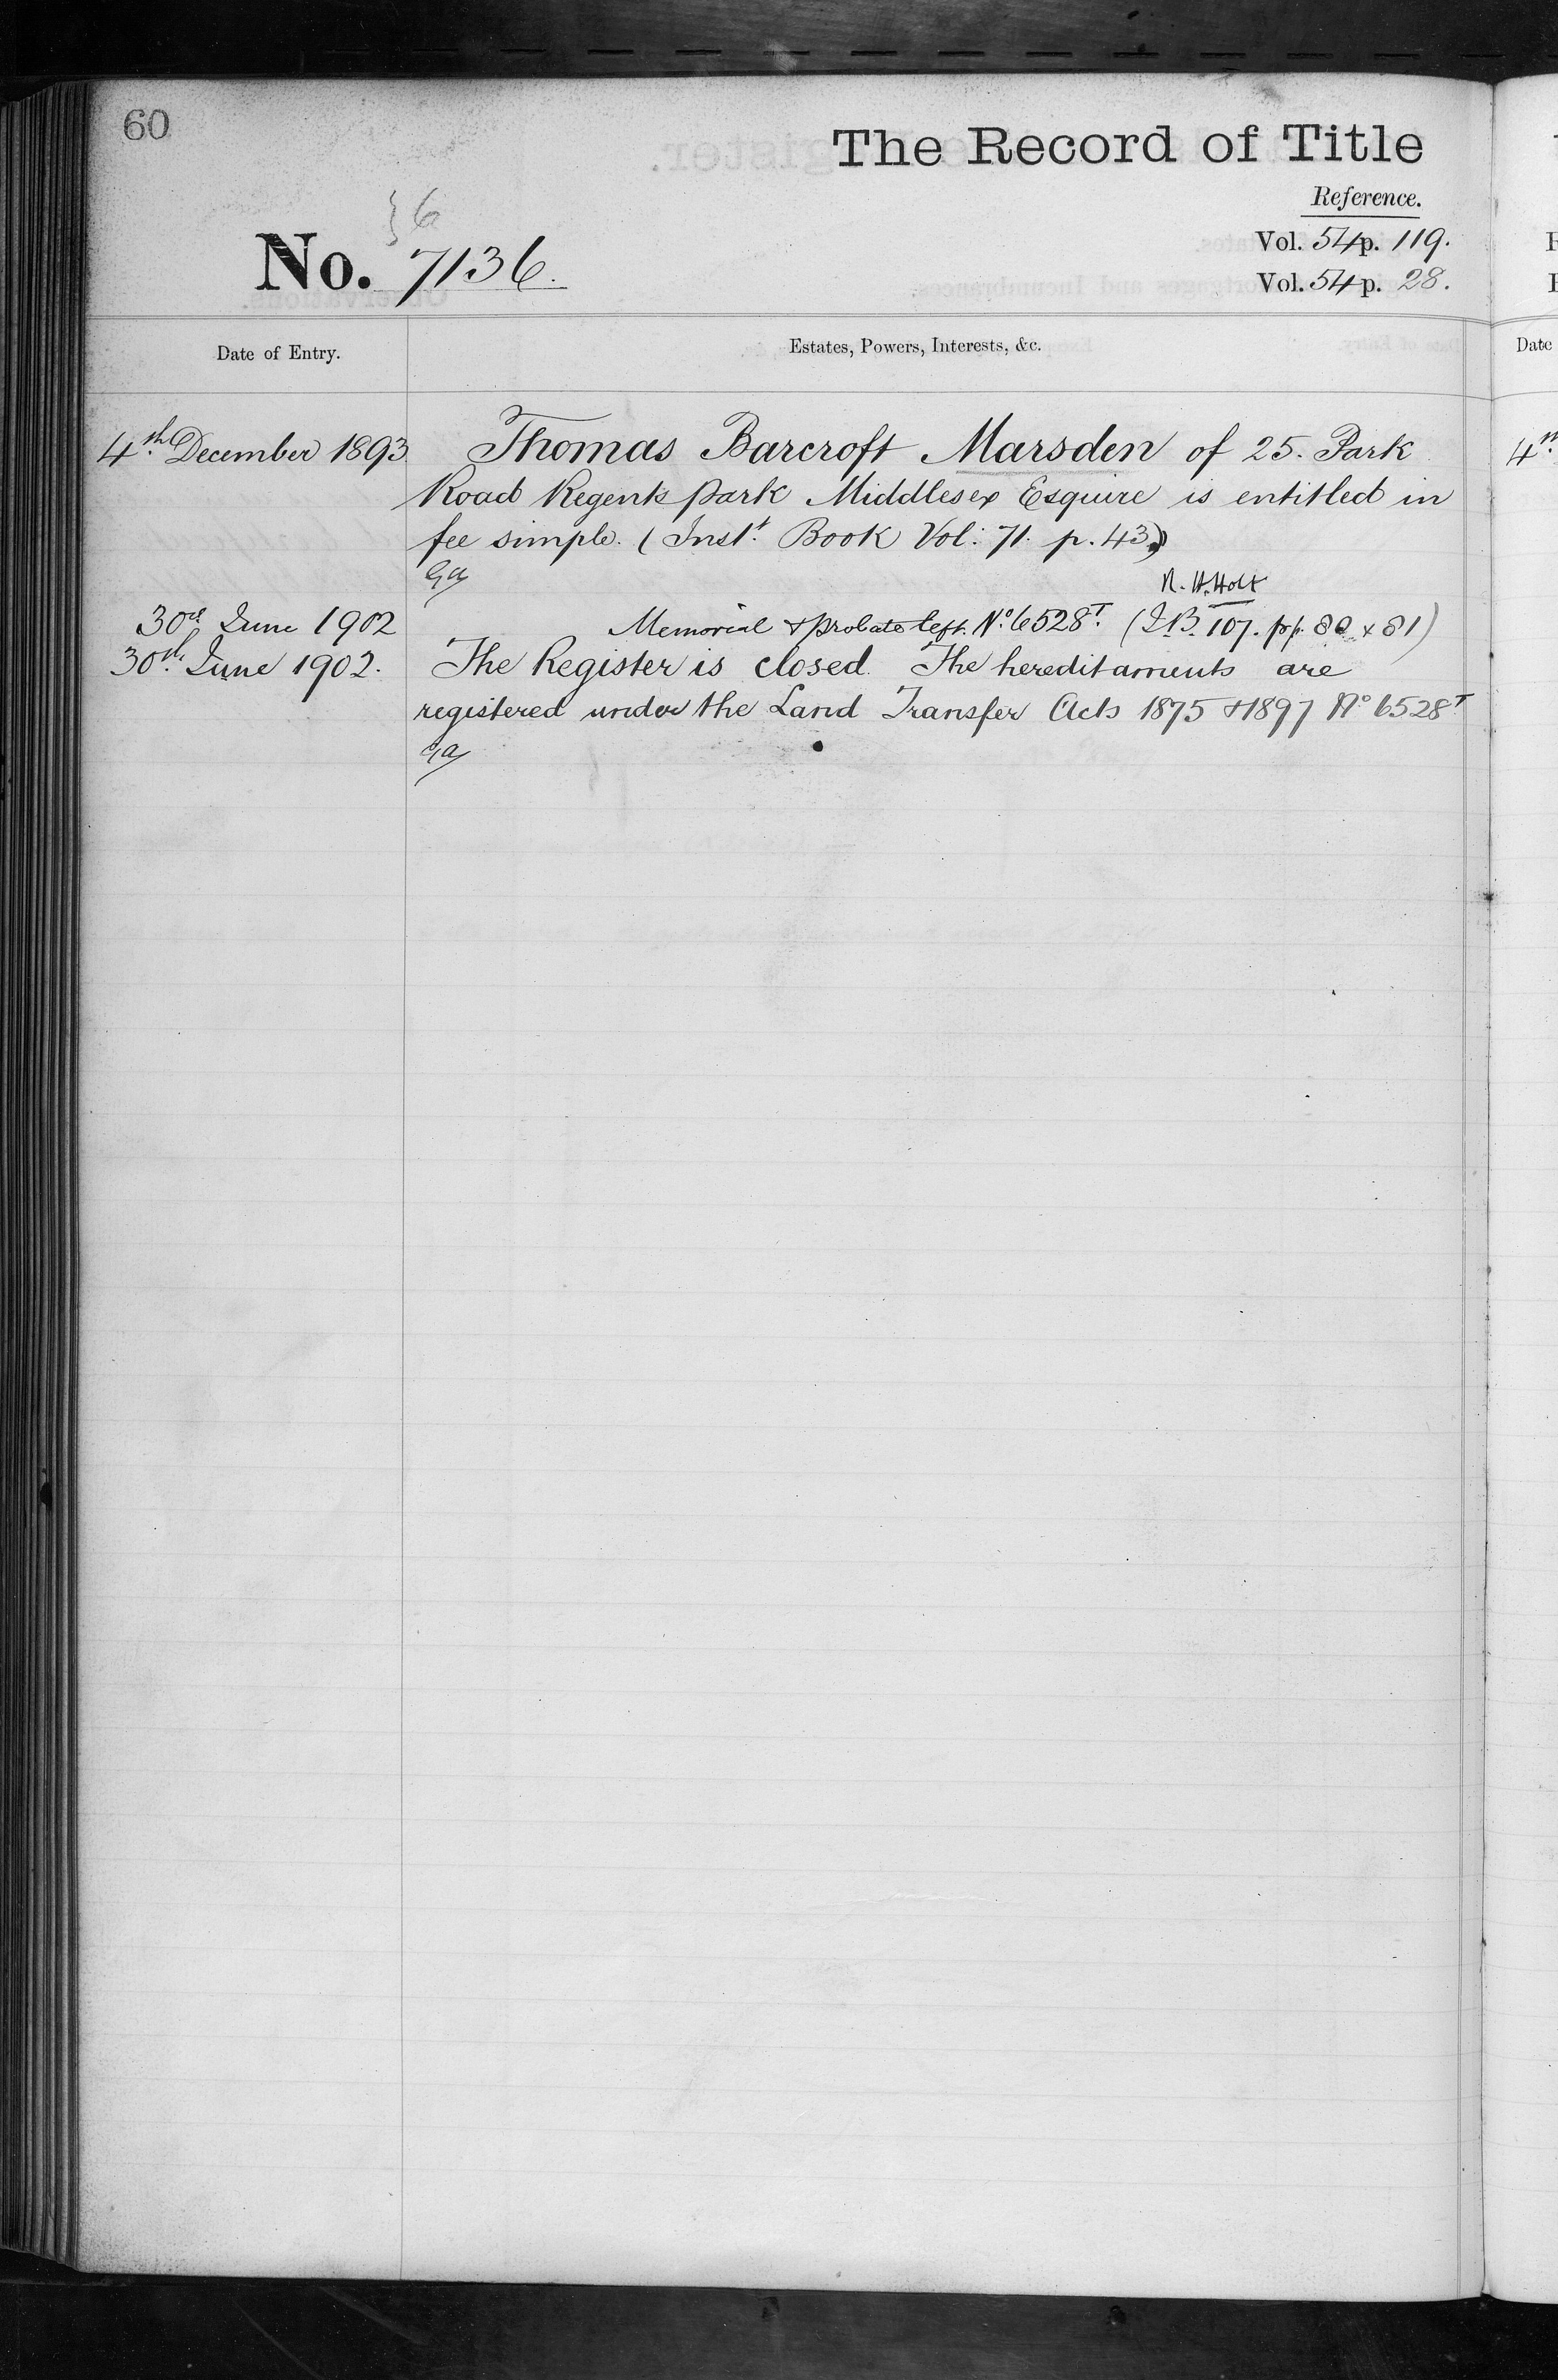 60
The Record of Title
Reference.
6
No. 7136.
Vol. 54 p. 119.
Vol. 54 p. 28.
Date of Entry.
Estates, Powers, Interests, &c.
Date
4th December 1893
Thomas Barcroft Marsden of 25. Park
Road Regents park Middlesex Esquire is entitled in
fee simple. (Inst. Book Vol: 71. p. 43)
4th
R. H. Holt
30th June 1902
Memorial & probate left. No. 6528T. (I.B. 107. pp. 80 & 81)
30th June 1902.
The Register is closed. The hereditaments are
registered under the Land Transfer Acts 1875 & 1897 No 6528T